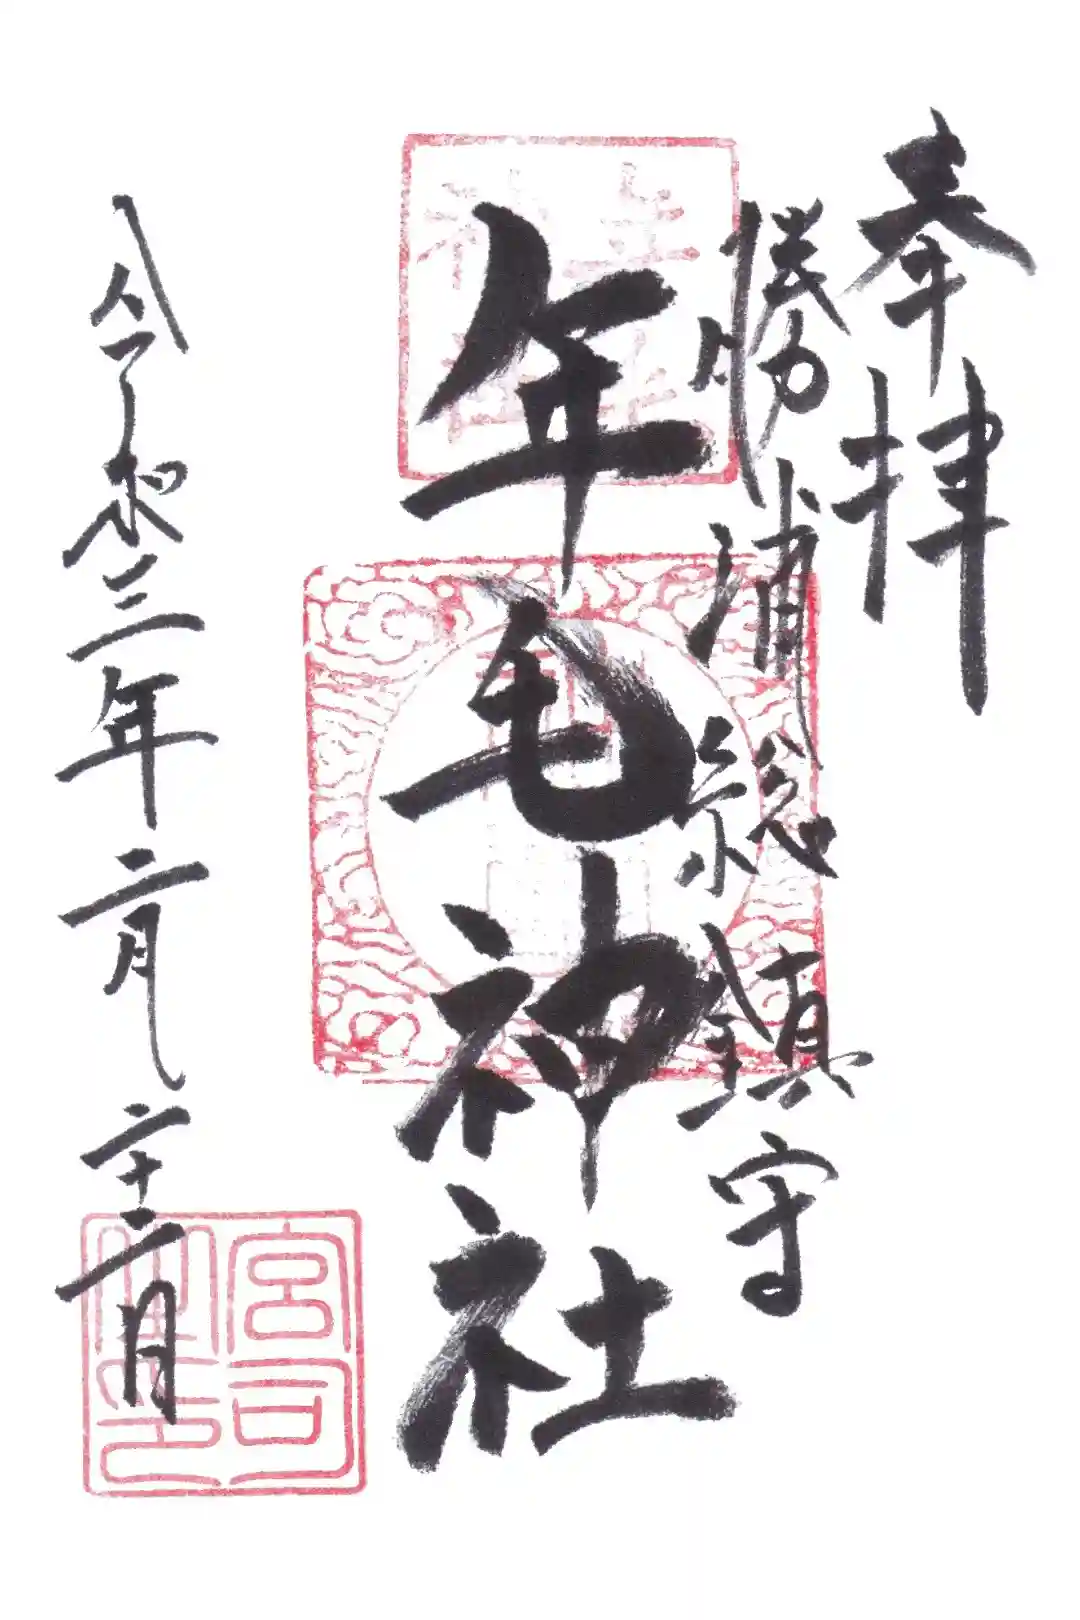 奉拝
勝浦総鎮守
年毛神社
令和三年二月二十二日
宮司之印